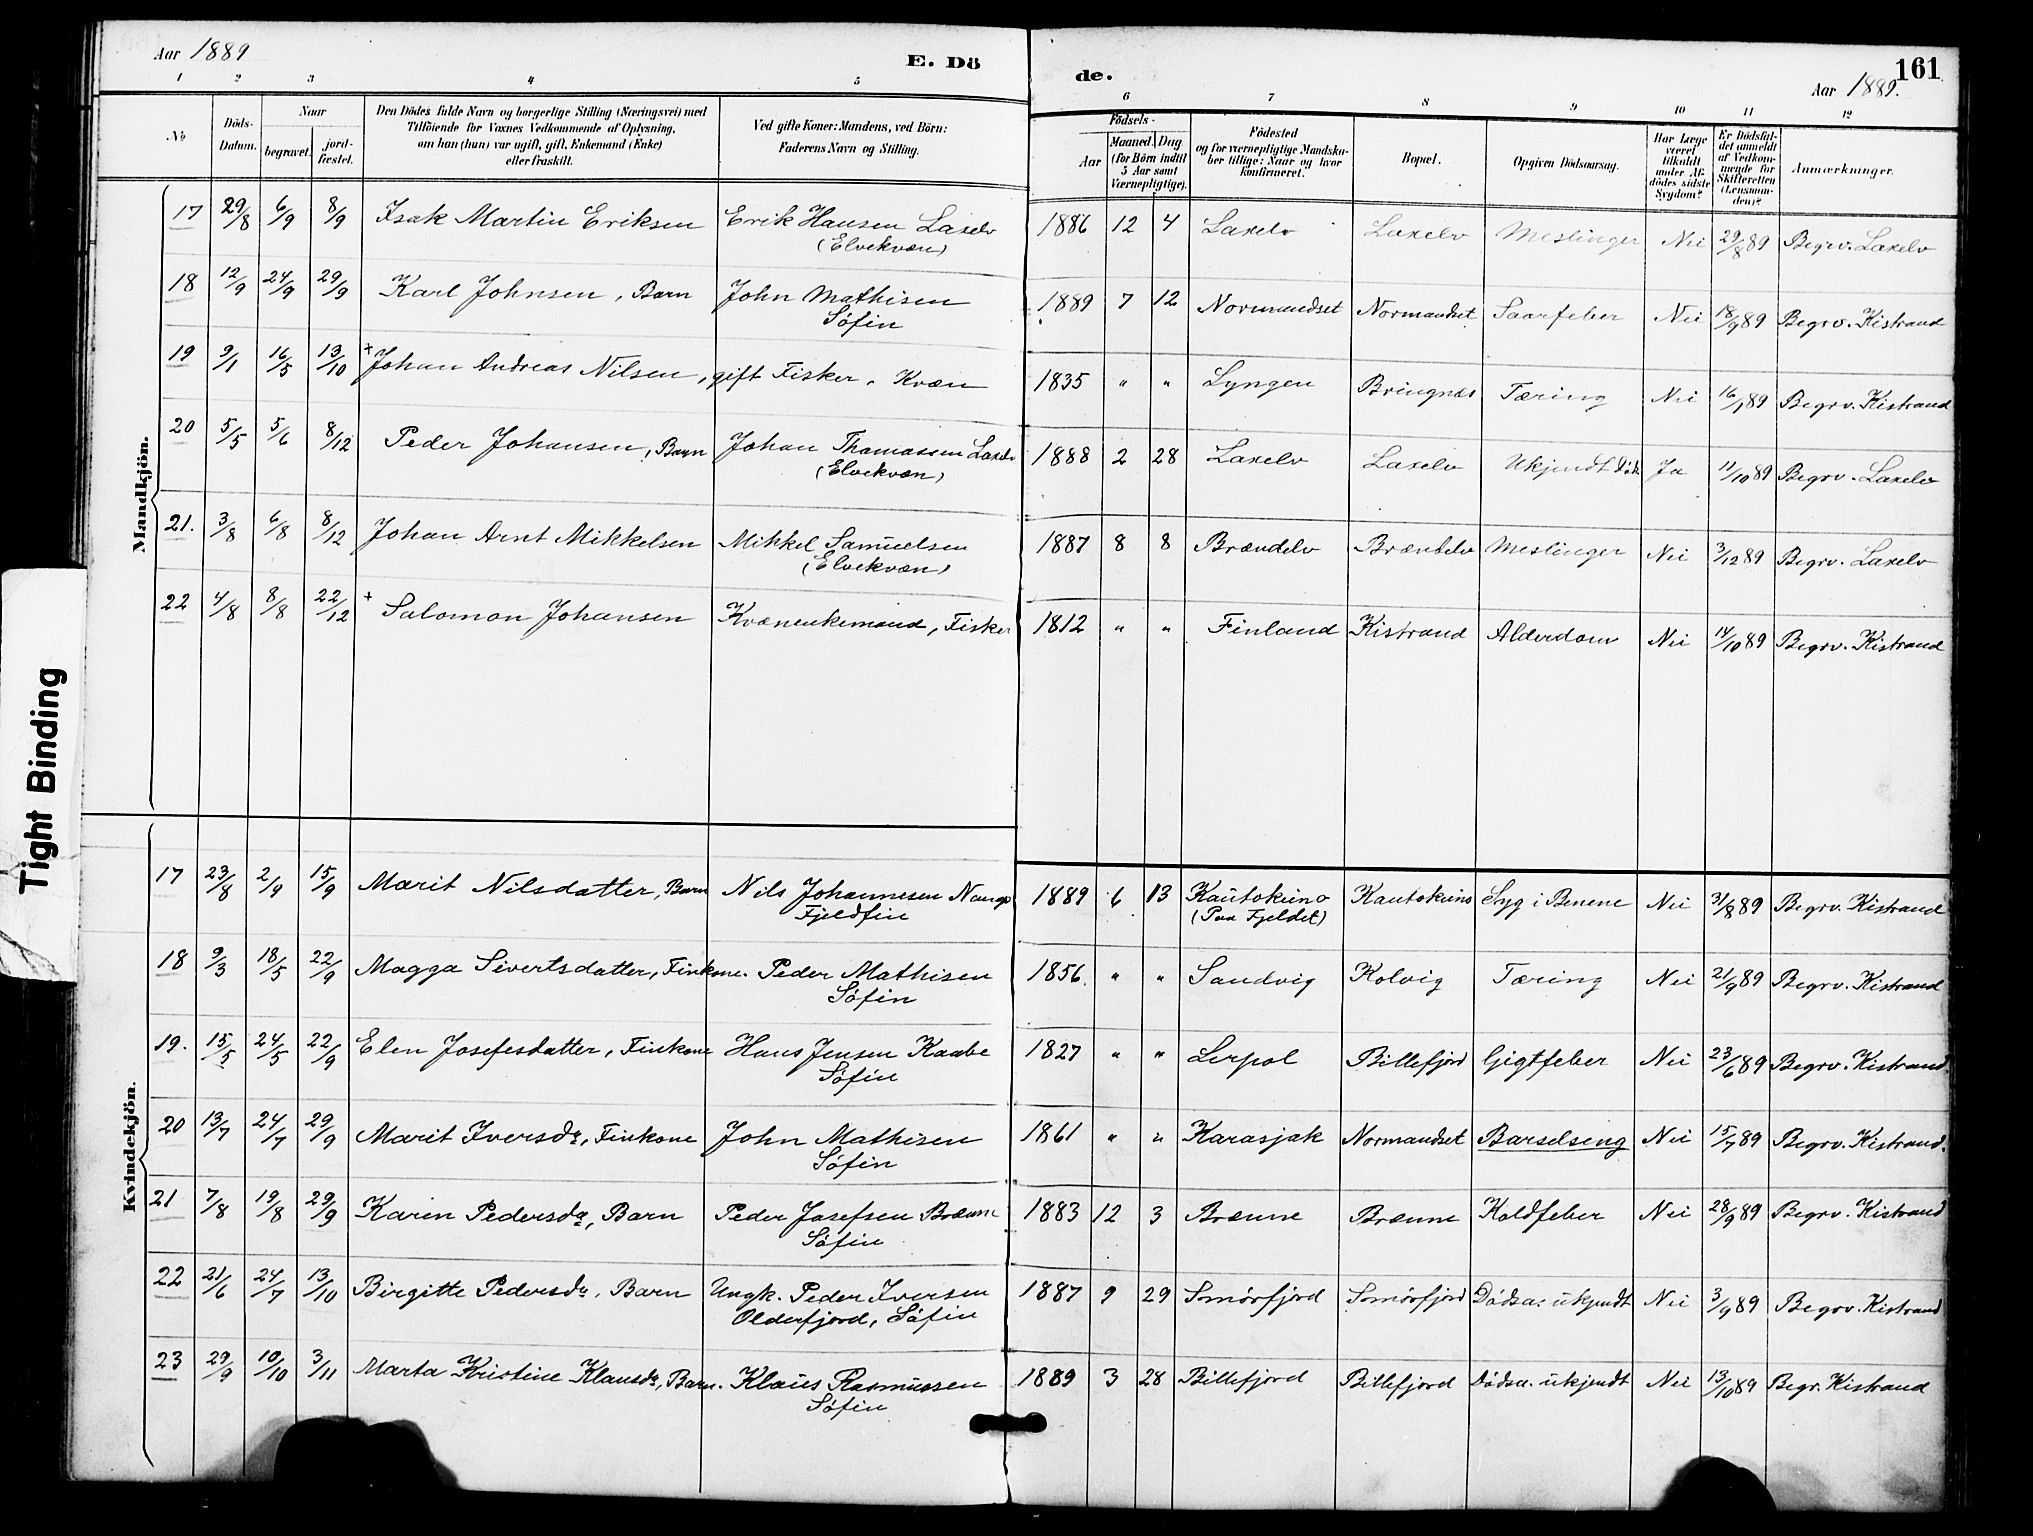 Aar 1889
E. Dö
de.
161
Aar 1889.
1 2 3 4 5 6 7 8 9 10 11 12
No
Döds-Datum.
Naar
begravet.
jord-fæstet.
Den Dödes fulde Navn og borgerlige Stilling (Næringsvei) med
Tilföiende for Voxnes Vedkommende af Oplysning,
om han (hun) var ugift, gift, Enkemand (Enke)
eller fraskilt.
Ved gifte Koner: Mandens, ved Börn:
Faderens Navn og Stilling.
Födsels-
Aar
Maaned. Dag
(for Börn indtil
5 Aar samt
Værnepligtige).
Födested
og for værnepligtige Mandska-
ber tillige: Naar og hvor
konfirmeret.
Bopæl.
Opgiven Dödsaarsag.
Har Læge
været
tilkaldt
under Af-
dödes sidste
Sygdom?
Er Dödsfal-
det anmeldt
af Vedkom-
mende for
Skifteretten
(Lensman-
den)?
Anmærkninger.
Mandkjön.
17 29/8 6/9 8/9 Isak Martin Eriksen Erik Hansen Laxelv 1886 12 4 Laxelv Laxelv Meslinger Nei 29/8 89 Begrv. Laxelv
(Elvekvæn)
18 12/9 24/9 29/9 Karl Johnsen, Barn John Mathisen 1889 7 12 Normandset Normandset Saarfeber Nei 18/9 89 Begrv. Kistrand
Söfin
19 9/1 16/5 13/10 + Johan Andreas Nilsen, gift Fisker. Kvæn 1835 " " Lyngen Bringnæs Tæring Nei 16/1 89 Begrv. Kistrand
20 5/5 5/6 8/12 Peder Johansen, Barn Johan Thomassen Laxelv 1888 2 28 Laxelv Laxelv Ukjendt Ja 11/10 89 Begrv. Laxelv
(Elvekvæn)
21. 3/8 6/8 8/12 Johan Arnt Mikkelsen Mikkel Samuelsen 1887 8 8 Brændelv Brændelv Meslinger Nei 3/12 89 Begrv. Laxelv
(Elvekvæn)
22 4/8 8/8 22/12 + Salomon Johansen Kvænenkemand, Fisker 1812 " " Finland Kistrand Alderdom Nei 14/10 89 Begrv. Kistrand
Kvindekjön.
17 23/8 2/9 15/9 Marit Nilsdatter, Barn Nils Johannesen Nango 1889 6 13 Kautokeino Kautokeino Syg i Benene Nei 31/8 89 Begrv. Kistrand
Fjeldfin (Paa Fjeldet)
18 9/3 18/5 22/9 Magga Sivertsdatter, Finkone. Peder Mathisen 1856. " " Sandvig Kolvig Tæring Nei 21/9 89 Begrv. Kistrand
Söfin
19. 15/5 24/5 22/9 Elen Josefesdatter, Finkone Hans Jensen Kaabe 1827 " " Lerpol Billefjord Gigtfeber Nei 23/6 89 Begrv. Kistrand.
Söfin
20 13/7 24/7 29/9 Marit Iversda, Finkone John Mathisen 1861 " " Karasjak Normandset Barselseng Nei 15/7 89 Begrv. Kistrand.
Söfin
21 7/8 19/8 29/9 Karen Pedersda, Barn Peder Josefsen Brænne 1883 12 3 Brænne Brænne Koldfeber Nei 28/9 89 Begrv. Kistrand
Söfin
22 21/6 24/7 13/10 Birgitte Pedersda, Barn Ungk. Peder Iversen 1887 9 29 Smörfjord Smörfjord Dödsa. ukjendt Nei 3/9 89 Begrv. Kistrand
Olderfjord, Söfin
23 29/9 10/10 3/11 Marta Kristine Klausda, Barn. Klaus Rasmussen 1889 3 28 Billefjord Billefjord Dödsa. ukjendt Nei 13/10 89 Begr. Kistrand
Söfin
Tight Binding